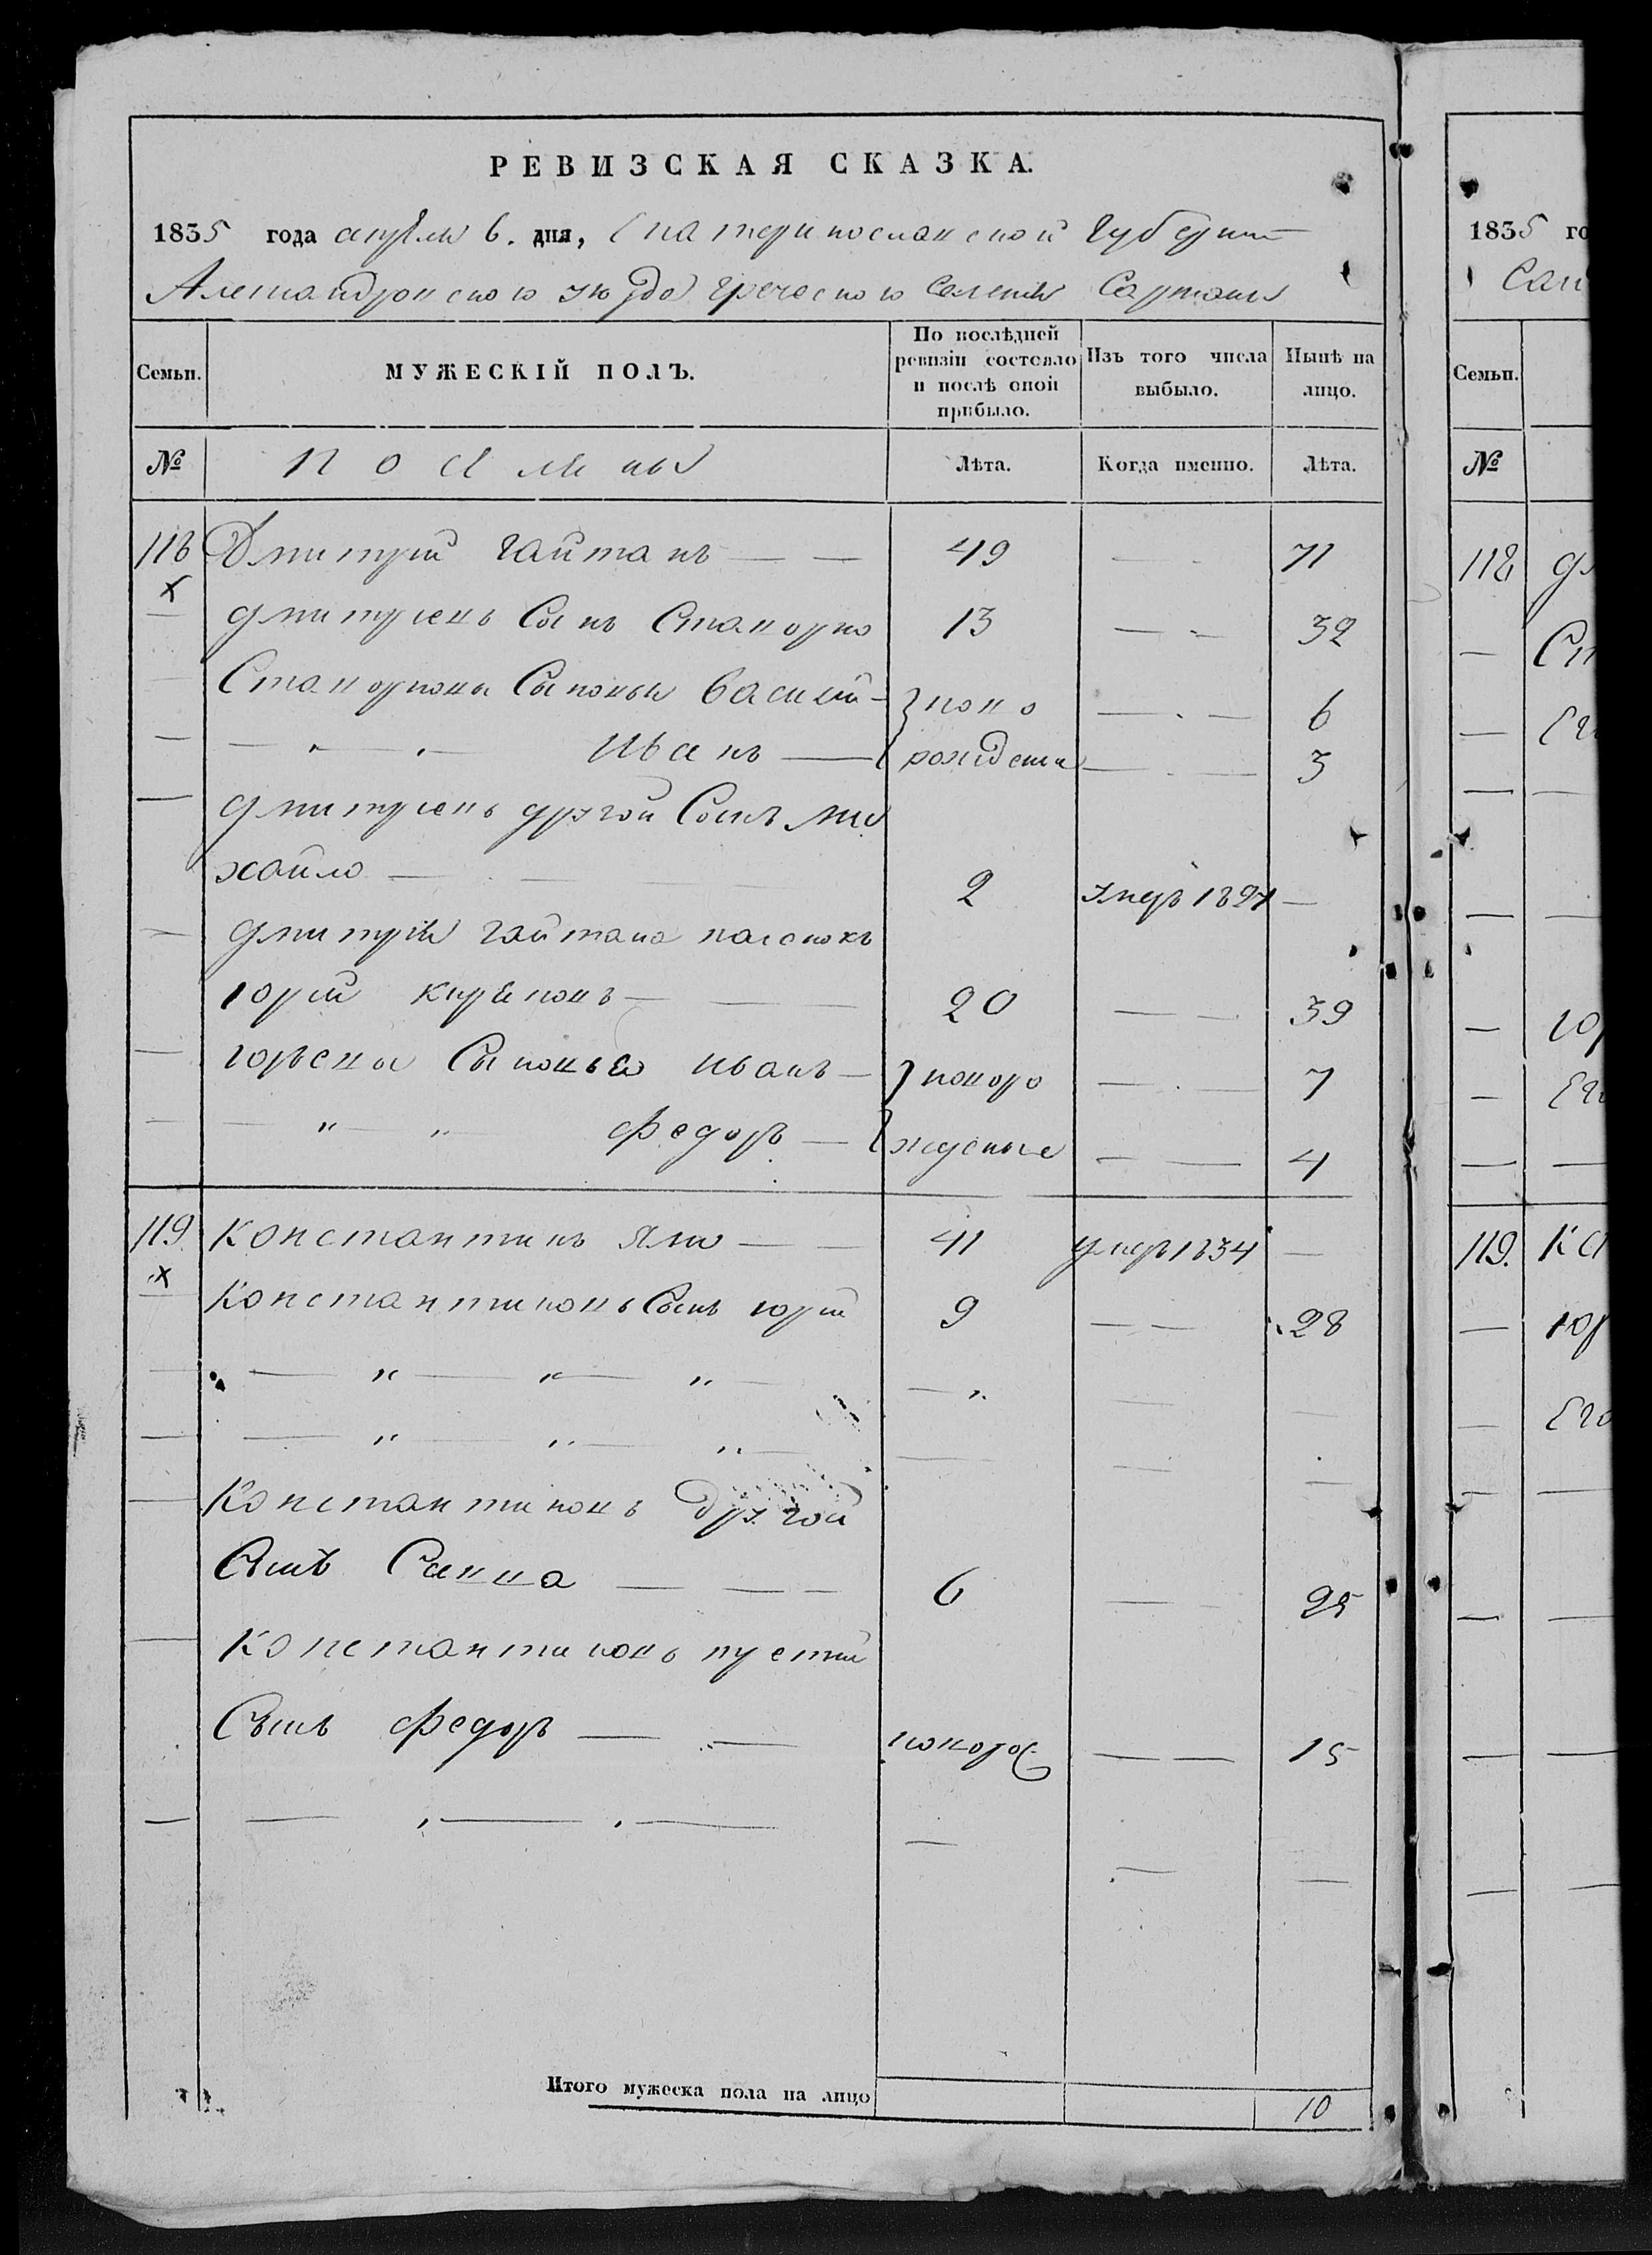 РЕВИЗСКАЯ СКАЗКА.
1835 года апреля 6. дня, Екатеринославской губернии
Александровского уезда греческого селения Сартаны
Семьи.
МУЖЕСКІЙ ПОЛЪ.
По послѣдней ревизіи состояло и послѣ оной прибыло.
Изъ того числа выбыло.
Нынѣ на лицо.
№
Лѣта.
Когда именно.
Лѣта.
118 Дмитрий Гайтанъ — — 49 — 71
дмитриевъ Сынъ 13 — — 32
Сыновья Василий - ново — 6
— " — " Иванъ — рожденные — 3
дмитриевъ другой Сынъ Ми
хайло — 2 умеръ 1827 —
дмитрія гайтана пасонокъ
юрий — 20 — — 39
юрьевы Сыновья иванъ — новоро — 7
— " — " федоръ — жденые — — 4
119. Константинъ — — 41 умеръ 1834 —
Константиновъ Сынъ юрий 9 — — 28
— " — " — " — — "
— " — " — " —
Константиновъ другой
Сынъ Савва — — — 6 — 25
Константиновъ третий
Сынъ федоръ — — новорож — — 15
— " — " —
Итого мужеска пола на лицо 10
1835 го
Семьи.
№
118
Ег
Юр
Ег
119. Ко
Юр
Его